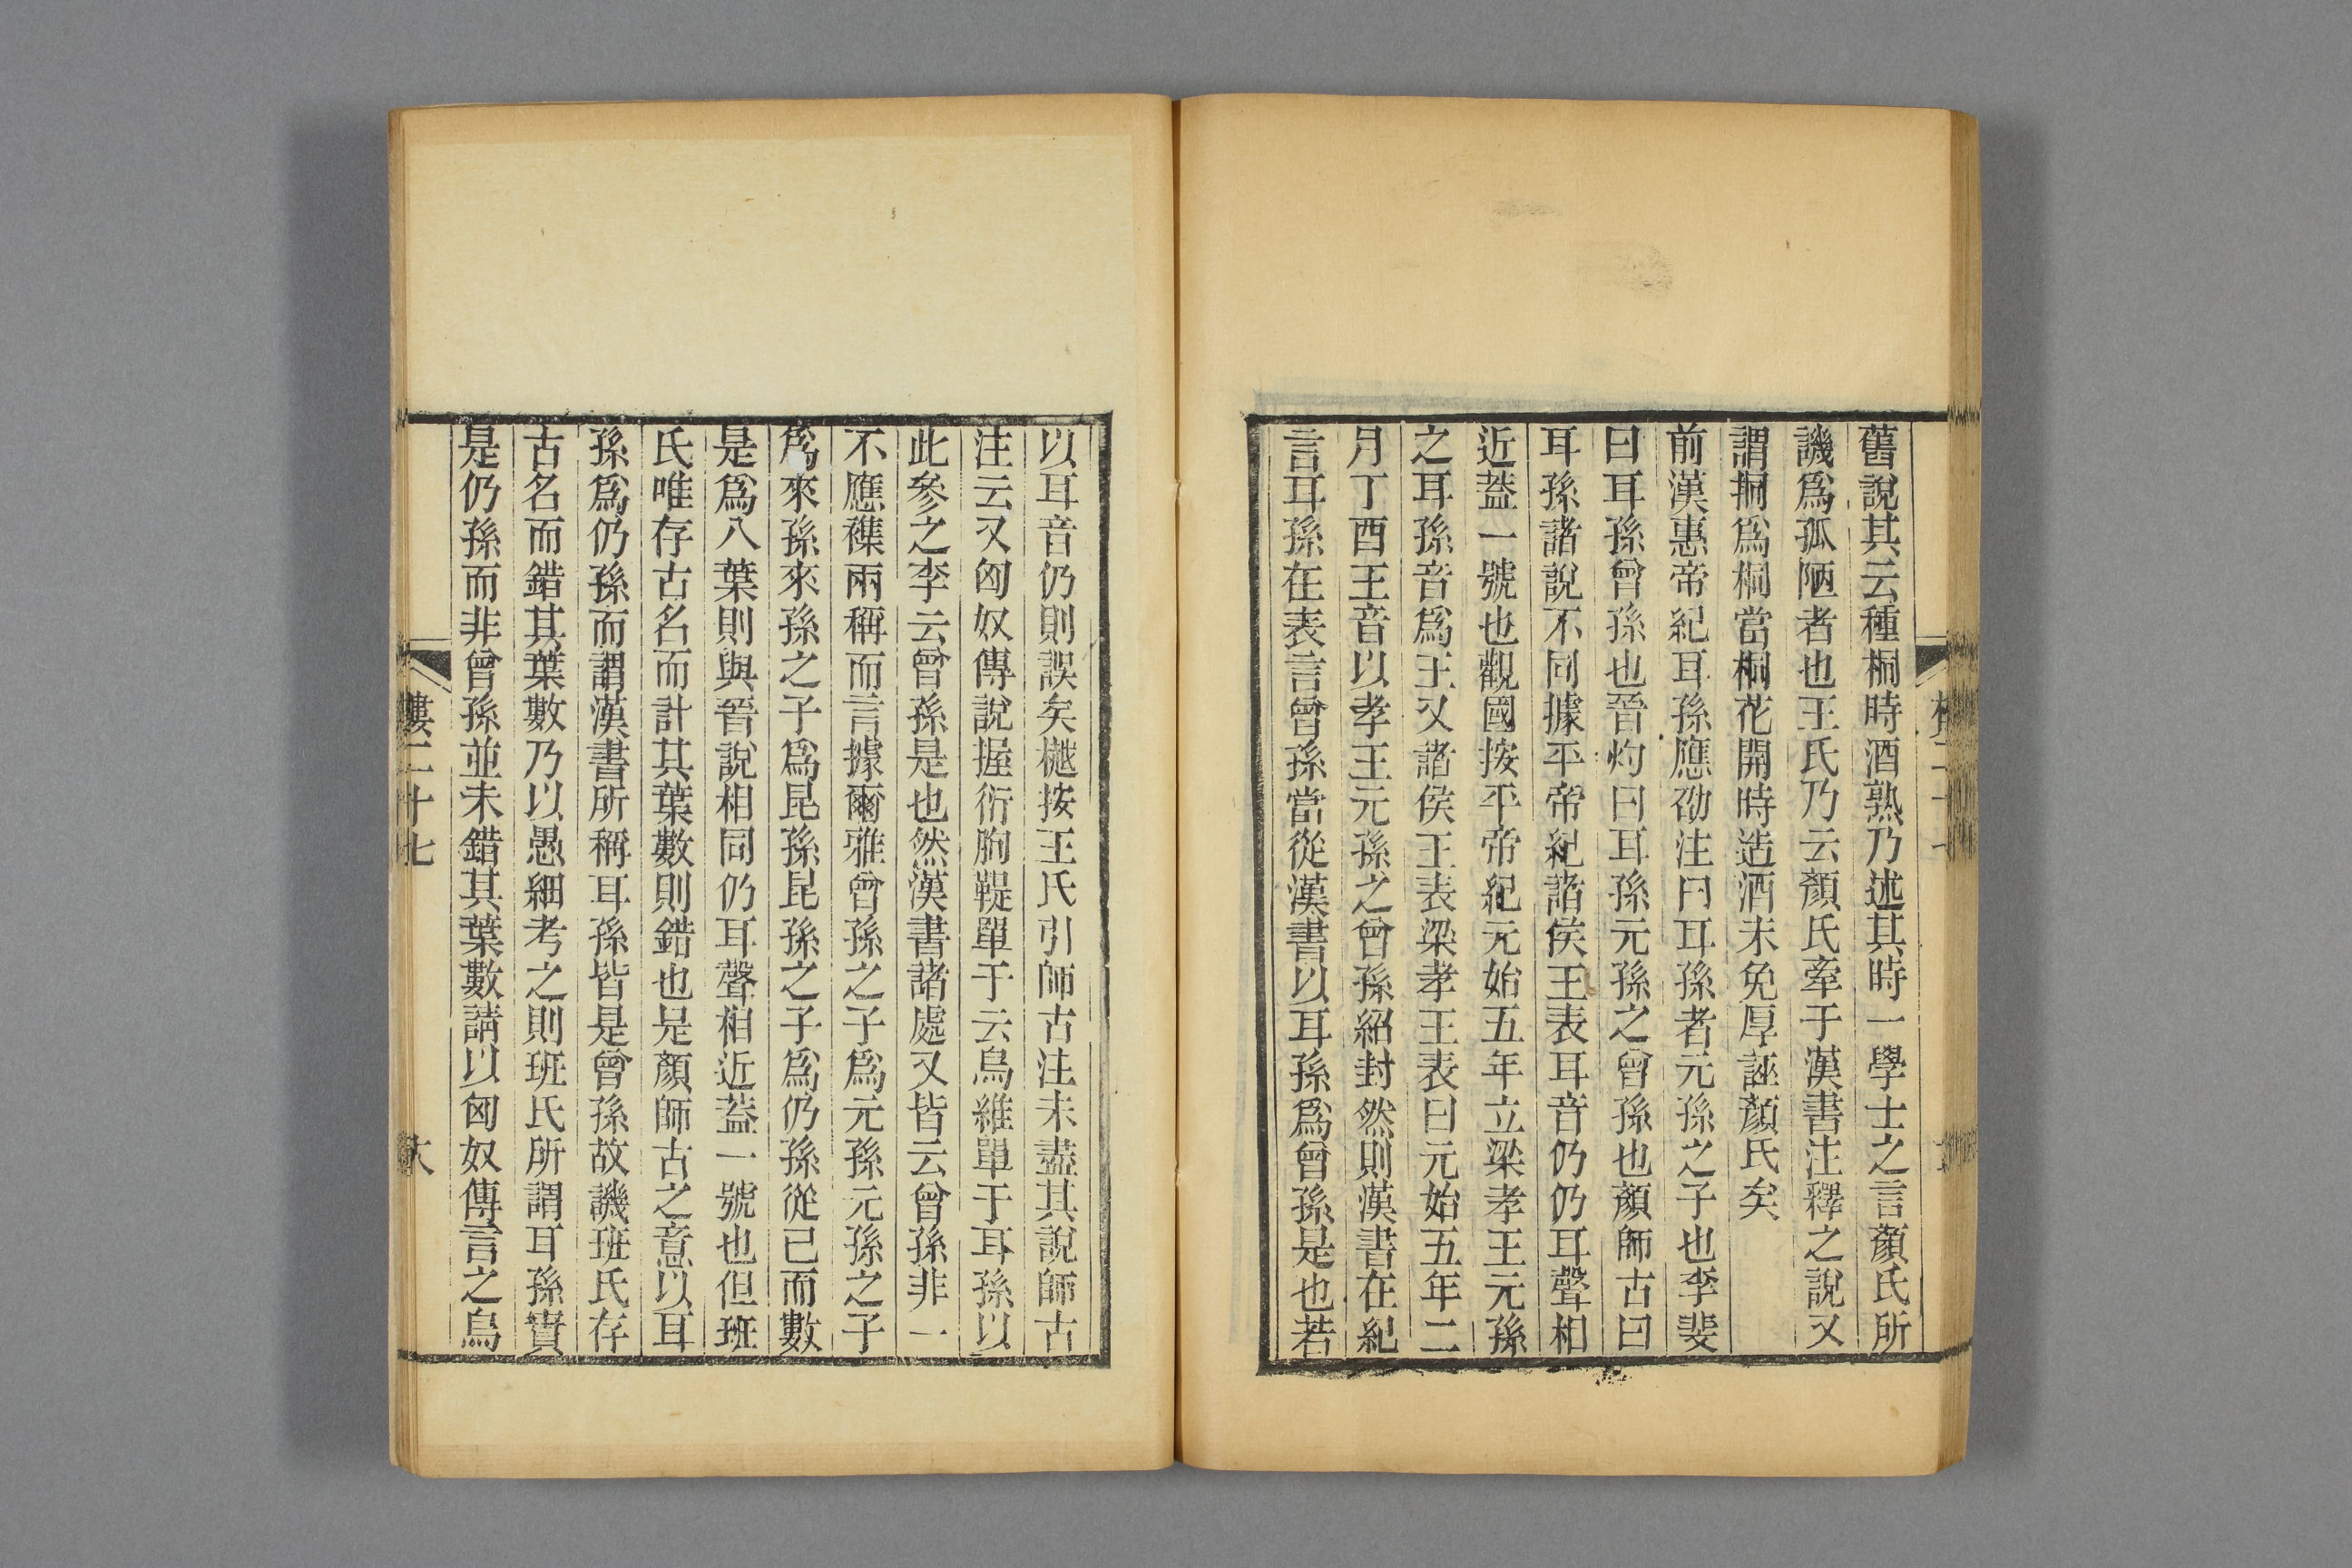 舊說其云種桐時酒熟乃述其時一學士之言顏氏所
譏爲孤陋者也王氏乃云顏氏牽于漢書注釋之說又
謂挏爲桐當桐花開時造酒未免厚誣顏氏矣
前漢惠帝紀耳孫應劭注曰耳孫者元孫之子也李斐
曰耳孫曾孫也晉灼曰耳孫元孫之曾孫也顏師古曰
耳孫諸說不同據平帝紀諸侯王表耳音仍仍耳聲相
近葢一號也觀國按平帝紀元始五年立梁孝王元孫
之耳孫音爲王又諸侯王表梁孝王表曰元始五年二
月丁酉王音以孝王元孫之曾孫紹封然則漢書在紀
言耳孫在表言曾孫當從漢書以耳孫爲曾孫是也若
以耳音仍則誤矣樾按王氏引師古注未盡其說師古
注云又匈奴傳說握衍朐鞮單于云烏維單于耳孫以
此參之李云曾孫是也然漢書諸處又皆云曾孫非一
不應襍兩稱而言據爾雅曾孫之子爲元孫元孫之子
爲來孫來孫之子爲昆孫昆孫之子爲仍孫從己而數
是爲八葉則與晉說相同仍耳聲相近葢一號也但班
氏唯存古名而計其葉數則錯也是顏師古之意以耳
孫爲仍孫而謂漢書所稱耳孫皆是曾孫故譏班氏存
古名而錯其葉數乃以愚細考之則班氏所謂耳孫實
是仍孫而非曾孫並未錯其葉數請以匈奴傳言之烏
樓二十七